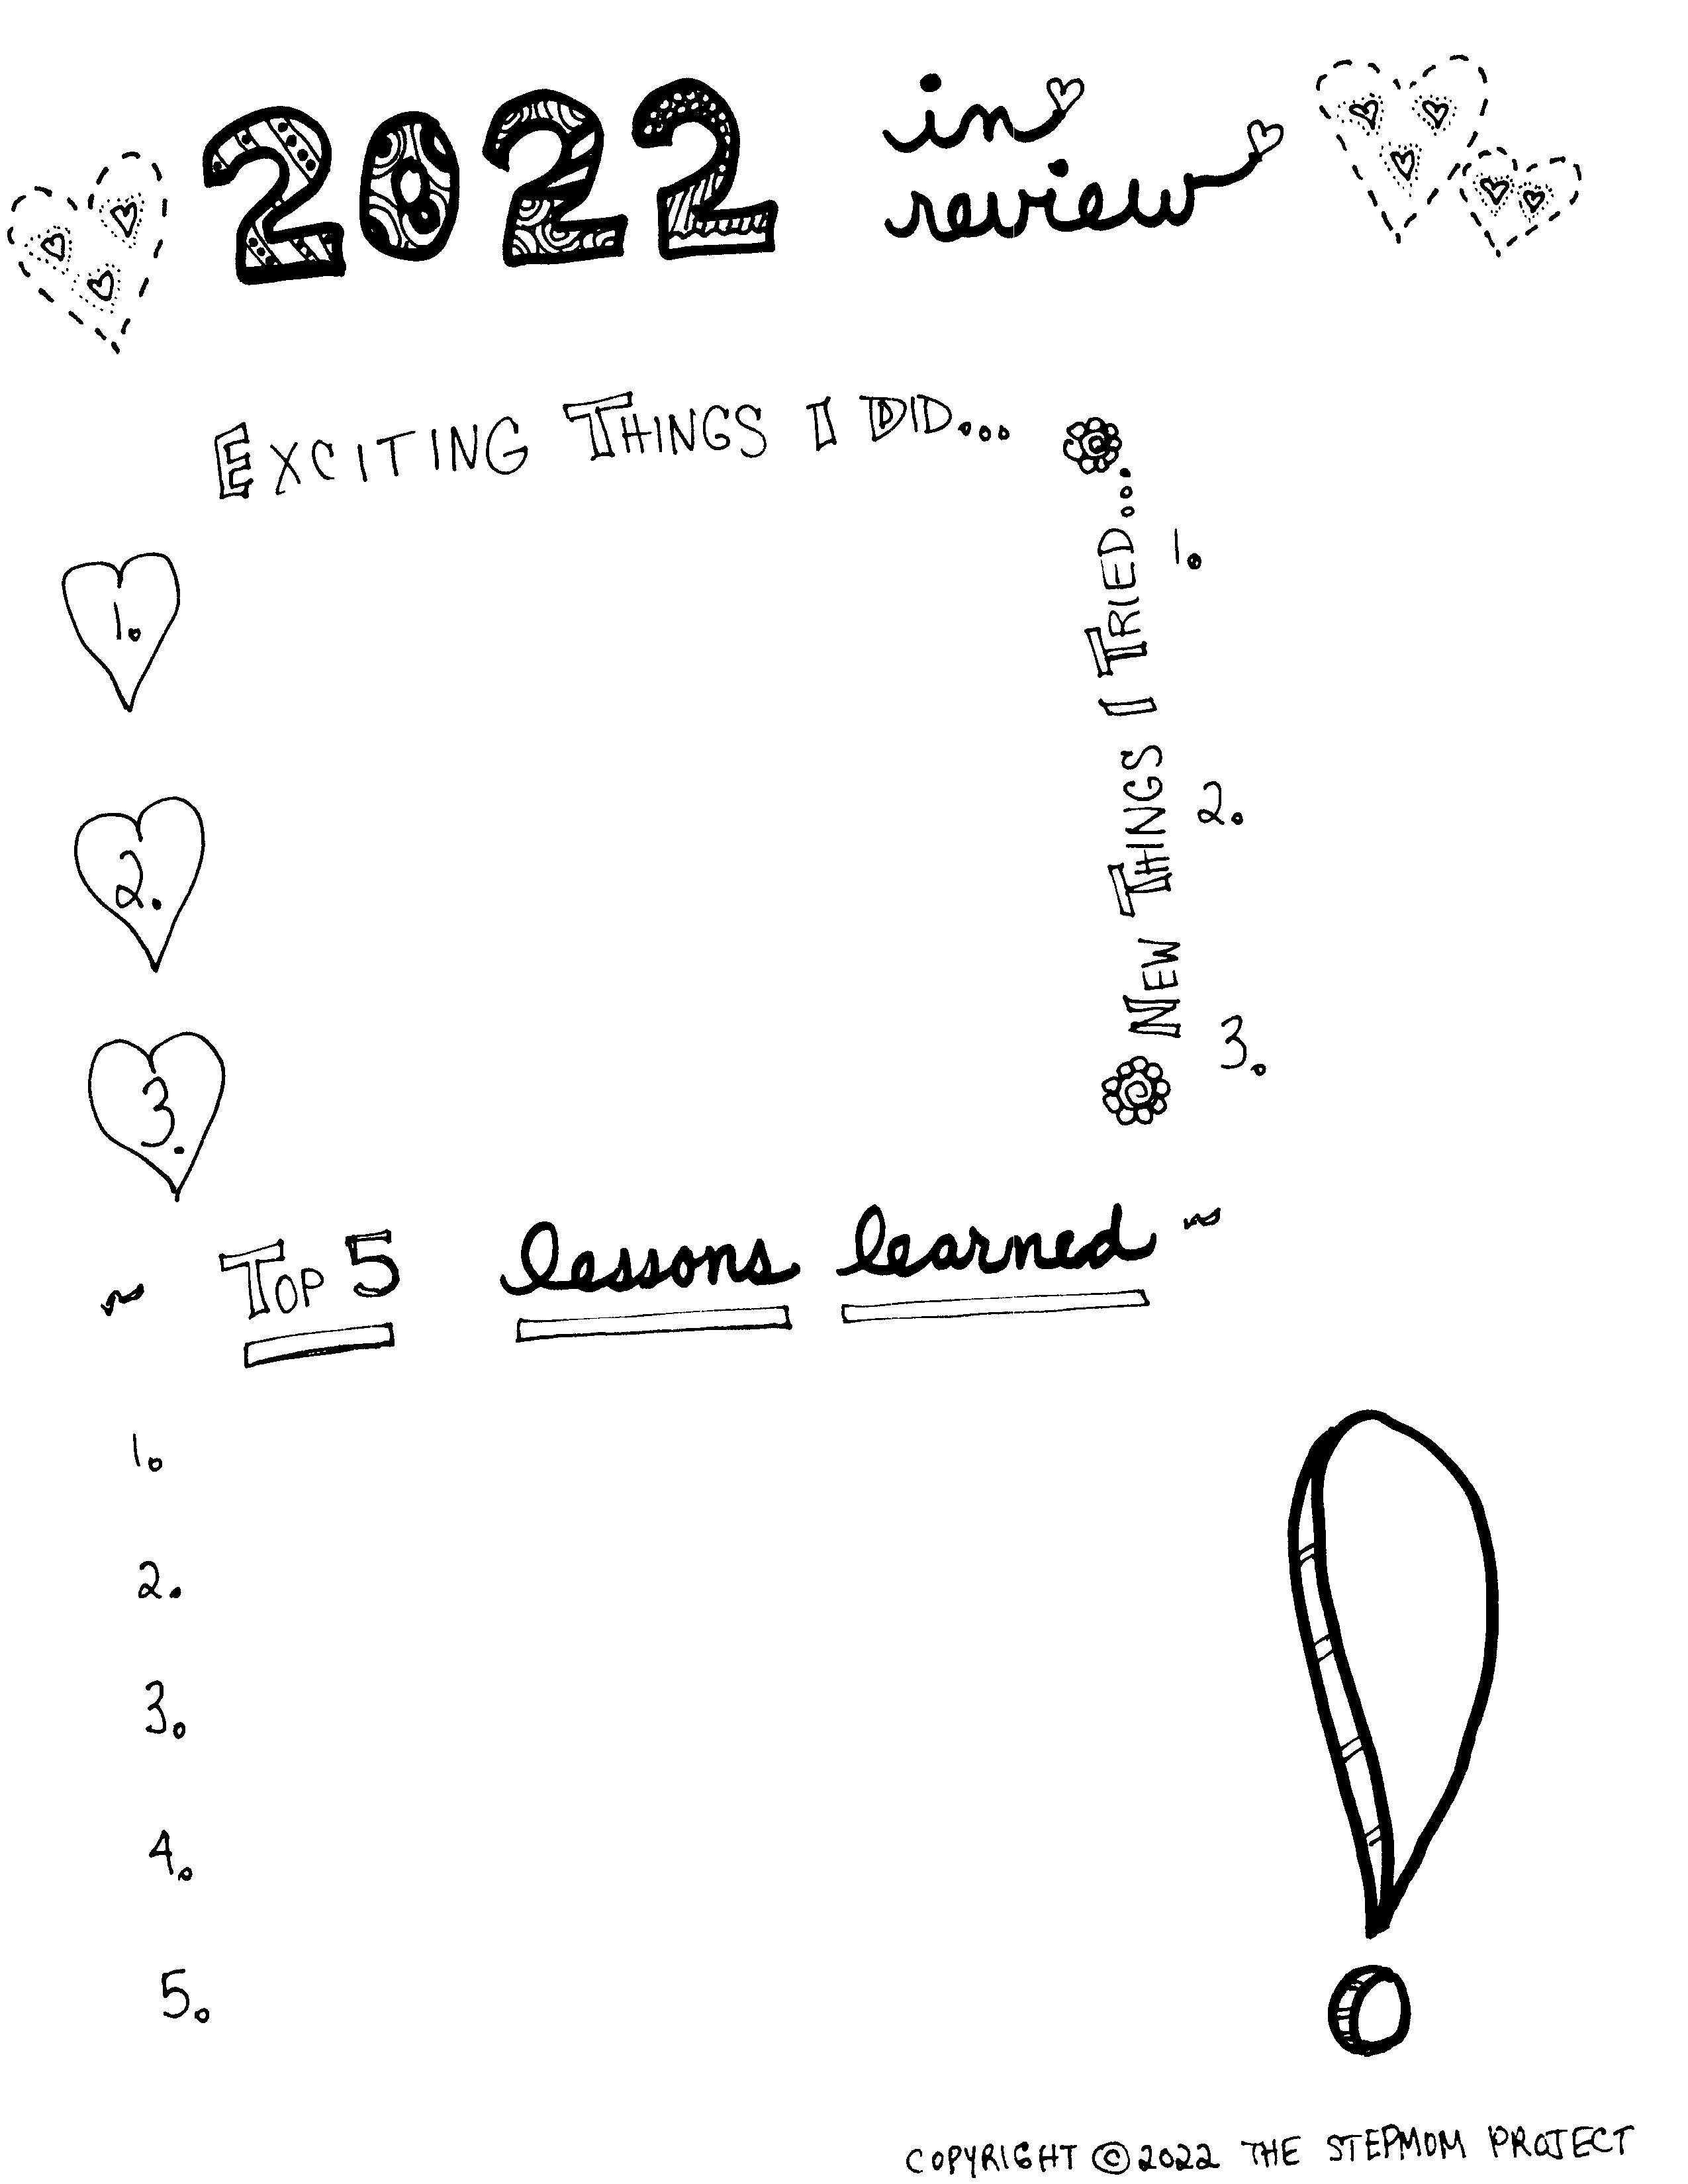 2022 in
review
EXCITING THINGS I DID...
1.
2.
3.
NEW THINGS I TRIED...
1.
2.
3.
~ TOP 5 lessons learned ~
1.
2.
3.
4.
5.
!
COPYRIGHT © 2022 THE STEPMOM PROJECT